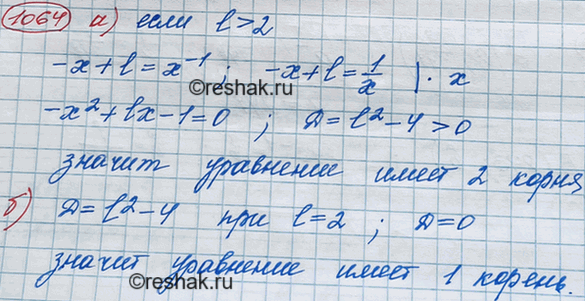 1064 а) если l>2
-x+l=x⁻¹; -x+l=1/x |·x
-x²+lx-1=0; Д=l²-4>0
значит уравнение имеет 2 корня
б) Д=l²-4 при l=2; Д=0
значит уравнение имеет 1 корень.
©Reshak.ru